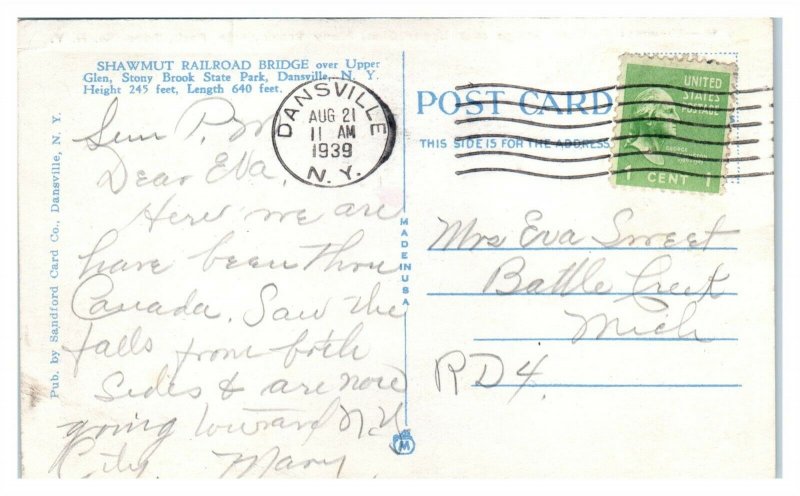 SHAWMUT RAILROAD BRIDGE over Upper
Glen, Stony Brook State Park, Dansville, N. Y.
Height 245 feet, Length 640 feet.
Pub. by Sandford Card Co., Dansville, N. Y.
DANSVILLE
AUG 21
11 AM
1939
N. Y.
P.M
Dear Eva,
Here we are
have been thru
Canada. Saw the
falls from both
Sides & are now
going toward N.Y
City. Mary
MADE IN USA
M
POST CARD
THIS SIDE IS FOR THE ADDRESS
UNITED
STATES
POSTAGE
GEORGE
1 CENT 1
Mrs Eva Sweet
Battle Creek
Mich
RD4.